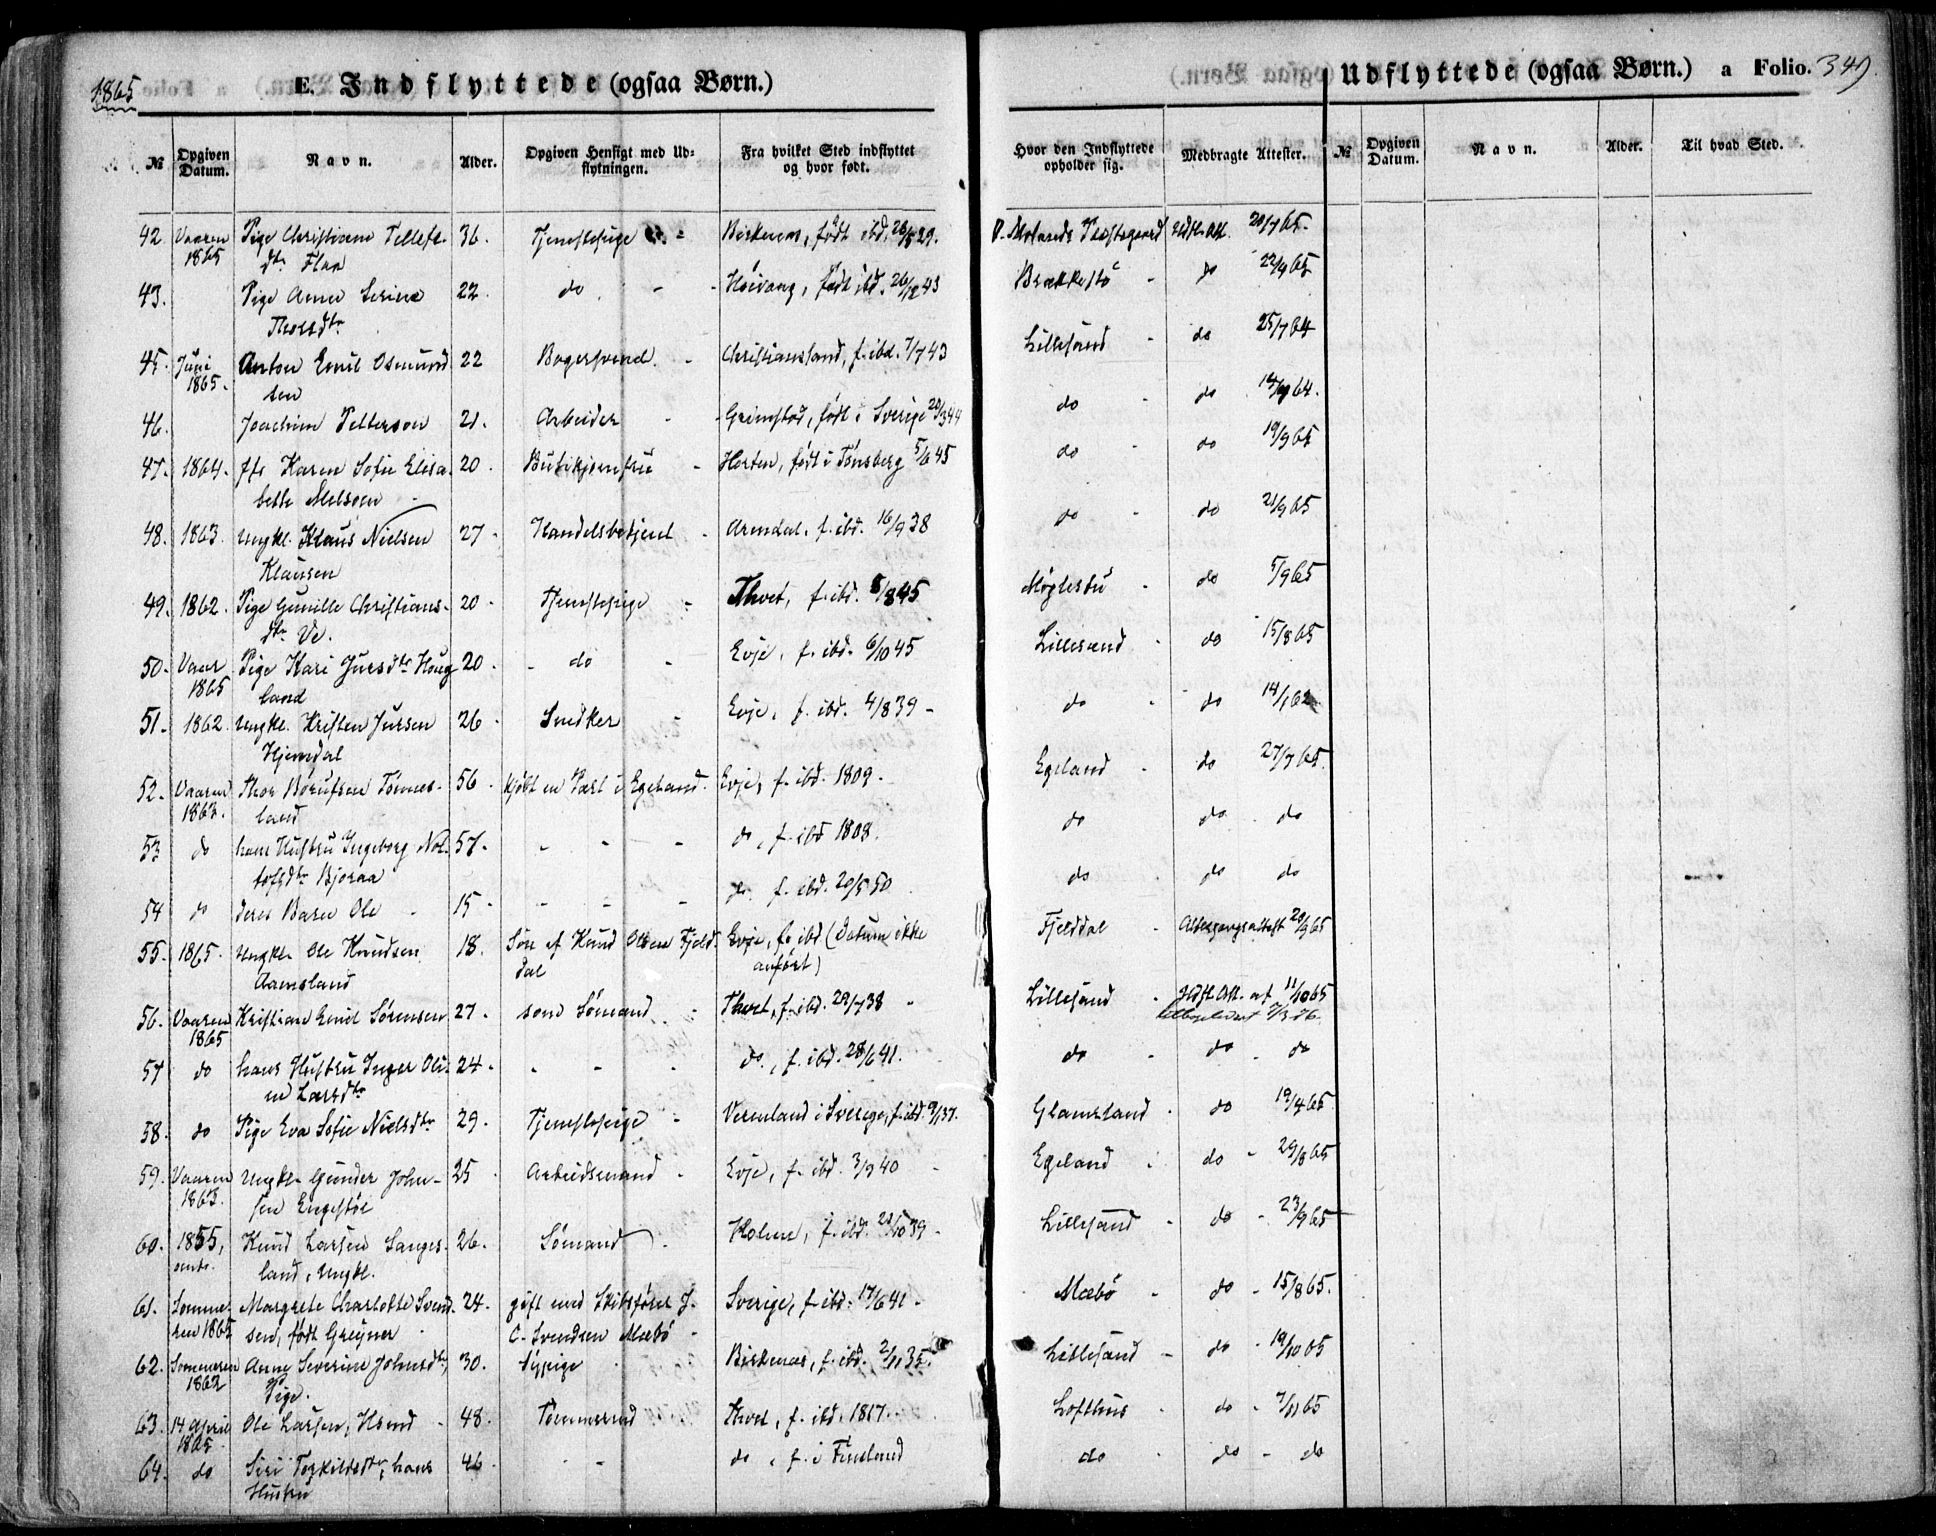 1865
E. Indflyttede (ogsaa Børn.)
Udflyttede (ogsaa Børn.) a Folio. 349.
№ Opgiven Datum. Navn. Alder. Opgiven Hensigt med Udflytningen. Fra hvilket Sted indflyttet og hvor født. Hvor den Indflyttede opholder sig. Medbragte Attester. № Opgiven Datum. Navn. Alder. Til hvad Sted.
42. Vaaren Pige Christiane Tellefs- 36. Tjenestepige Birkenes, født ibd. 26/8 29. V. Molands Præstegaard Indfl. Att. 20/7 65.
1865 dtr Flaa
43. Pige Anne Serine 22. do - - Høivaag, født ibd. 26/12 43 Brækkestø - do 22/9 65
Thorsdtr
45. Juni Anton Emil Osmund 22 Bagersvend - Christiansland, f. ibd. 7/7 43 Lillesand - do 25/7 64
1865. sen
46. Joachim Petterson 21. Arbeider - Grimstad, født i Sverige 20/3 44 do - do 14/9 64.
47. 1864. Karen Sofie Elisa- 20. Butikjomfru - Horten, født i Tønsberg 5/6 45 do - do 19/9 65
bette Melsoen
48. 1863. Ungkl. Klaus Nielsen 27 - Handelsbetjent - Arendal. f. ibd. 16/9 38 do - do 21/9 65
Klausen
49. 1862. Pige Gunille Christians- 20 - Tjenestepige - Thvet, f. ibd. 5/8 45 Møglestu - do 5/9 65
dtr Ve.
50. Vaar Pige Kari Jursdtr Houg- 20. - do - Evje, f. ibd. 6/10 45 Lillesand - do 15/8 65
1865 land
51. 1862. Ungkl. Kristen Jursen 26 - Snedker - Evje, f. ibd. 4/8 39 - do - do 14/1 62
Hjemdal
52. Vaaren Thor Børufsen Tønnes- 56. kjøbt en Part i Egeland. Evje, f. ibd. 1809. Egeland - do 27/7 65.
1863. land
53 do hans Hustru Ingeborg Not- 57. - - - do, f. ibd 1808. do do do
tofsdtr Bjoraa
54 do deres Barn Ole - 15 - - - - do f. ibd. 20/5 50 do do do
55. 1865. Ungkl. Ole Knudsen 18. Søn af Knud Olsen Fjeld- Evje, f. ibd (Datum ikke Fjelddal - Altergangsattest 20/9 65
Aamsland dal anført)
56. Vaaren Kristian Emil Sørensen 27. som Sømand - Thvet, f. ibd. 20/7 38 - Lillesand - Indfl. Att. af 11/10 65
1865 tilbageleveret 7/3 76.
57 do hans Hustru Inger Oli- 24. - - - do., f. ibd. 28/6 41. do - do - do
ne Larsdtr
58. do Pige Eva Sofie Nielsdtr 29. Tjenestepige - Vermland i Sverige, f. ibd. 9/1 37. Glamsland - do 19/4 65
59. Vaaren Ungkl. Gunder John- 25 - Arbeidsmand - Evje, f. ibd. 3/3 40 Egeland - do - 29/8 65
1863. sen Engestøl
60. 1855, Knud Larsen Sanges- 26. Sømand - Holum, f. ibd. 21/10 39 - Lillesand - do - 23/9 65
land, Ungkl.
61. Somme- Margrete Charlotte Svend- 24. gift med Skibsfører J. Sverige, f. ibd. 17/6 41 - Mæbø - do - 15/8 65.
ren 1865 sen, født Greyner - C. Svendsen Mæbø -
62. Sommeren Anne Severine Johnsdtr, 30. Sypige - Birkenes, f. ibd. 2/11 35. Lillesand - do - 19/10 65
1862 Pige.
63. 14 April Ole Larsen, - 48. Tømmermd Thvet, f. ibd. 1817. Lofthus - do - 7/11 65
1865.
64. do Siri Torkildsdtr, hans 46. - - do, f. i Finsland do - do - do
Hustru